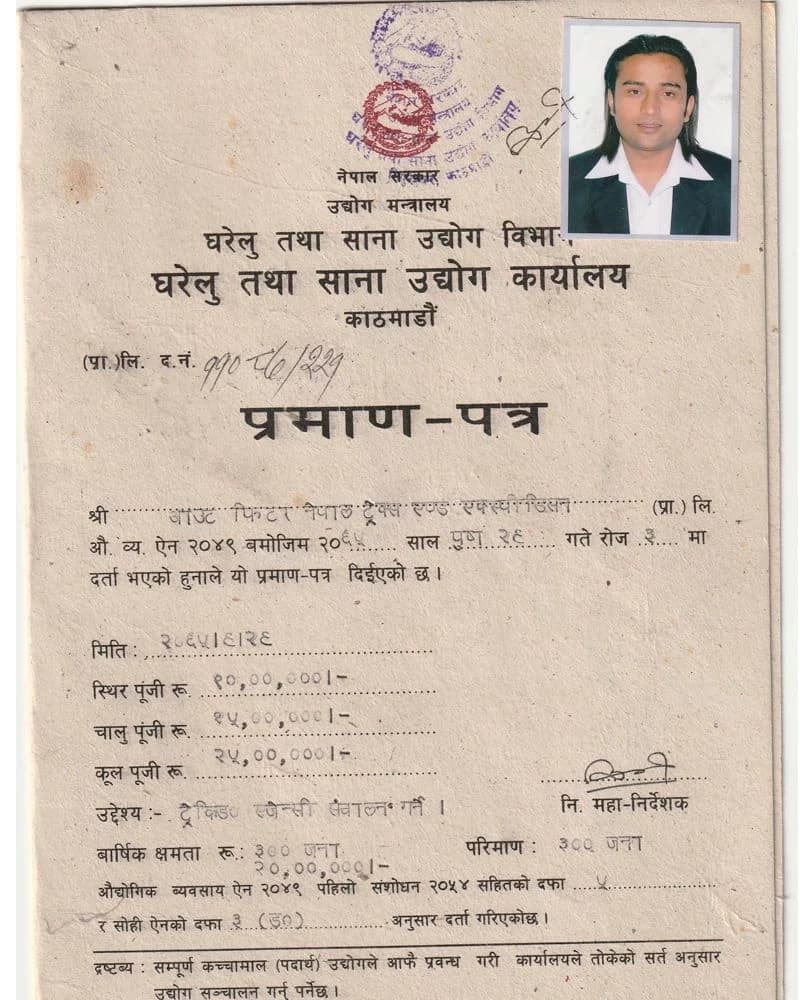 नेपाल सरकार
उद्योग मन्त्रालय
घरेलु तथा साना उद्योग विभाग
घरेलु तथा साना उद्योग कार्यालय
काठमाडौं
(प्रा.)लि. द.नं.
प्रमाण-पत्र
श्री आउट फिटर नेपाल ट्रेक्स एण्ड एक्स्पीडिसन (प्रा.) लि.
औ. व्य. ऐन २०४९ बमोजिम २०६५ साल पुष २९ गते रोज ३ मा
दर्ता भएको हुनाले यो प्रमाण-पत्र दिईएको छ।
मिति : २०६५।९।२९
स्थिर पूंजी रू. १०,००,०००।-
चालु पूंजी रू. १५,००,०००।-
कूल पूजी रू. २५,००,०००।-
नि. महा-निर्देशक
उद्देश्य :- ट्रेकिङ एजेन्सी संचालन गर्ने ।
बार्षिक क्षमता रू.: ३०० जना परिमाण : ३०० जना
२०,००,०००।-
औद्योगिक ब्यवसाय ऐन २०४९ पहिलो संशोधन २०५४ सहितको दफा ५
र सोही ऐनको दफा ३ (ङ) अनुसार दर्ता गरिएकोछ।
द्रष्टब्य : सम्पूर्ण कच्चामाल (पदार्थ) उद्योगले आफै प्रवन्ध गरी कार्यालयले तोकेको सर्त अनुसार
उद्योग सञ्चालन गर्नु पर्नेछ।